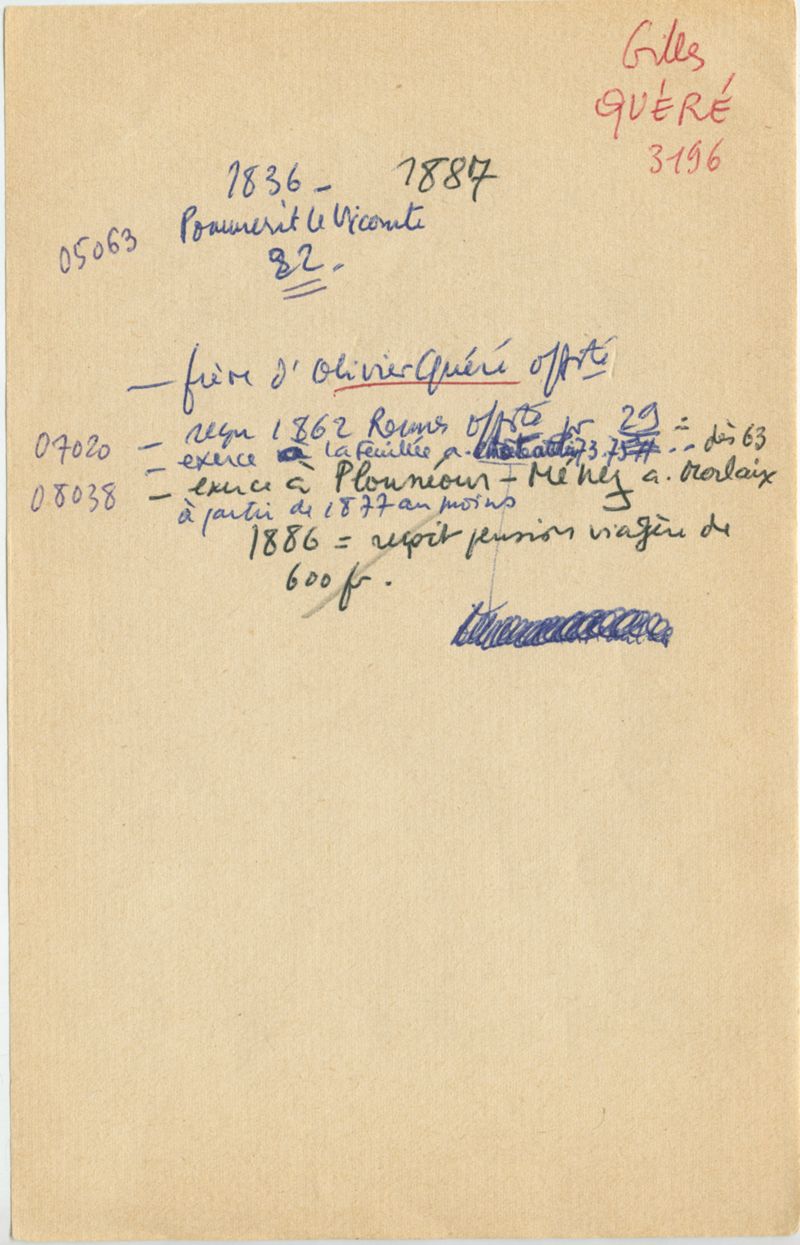 Gilles
QUÉRÉ
3196
1836 – 1887
05063 Pommerit le Vicomte
22.
— frère d'Olivier Quéré offté
07020 — reçu 1862 Rennes offté pr 29 =
— exerce à La Feuillée a. 73.75 ... dès 63
08038 — exerce à Plounéour-Ménez a. Morlaix
à partir de 1877 au moins
1886 = reçoit pension viagère de
600 fr.